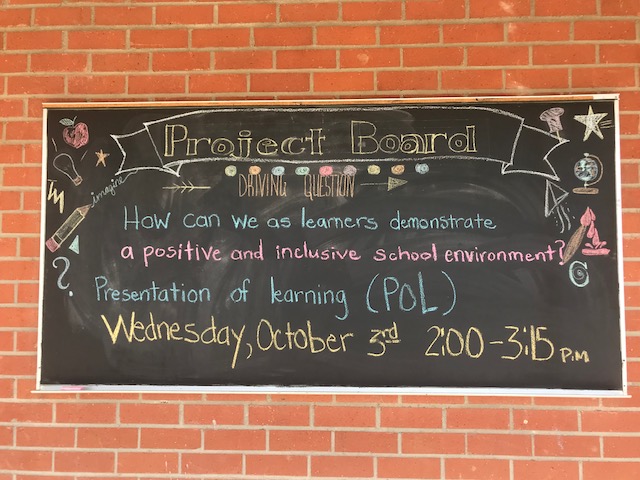 Project Board
imagine
DRIVING QUESTION
How can we as learners demonstrate
a positive and inclusive school environment?
Presentation of learning (POL)
Wednesday, October 3rd 2:00-3:15 P.M